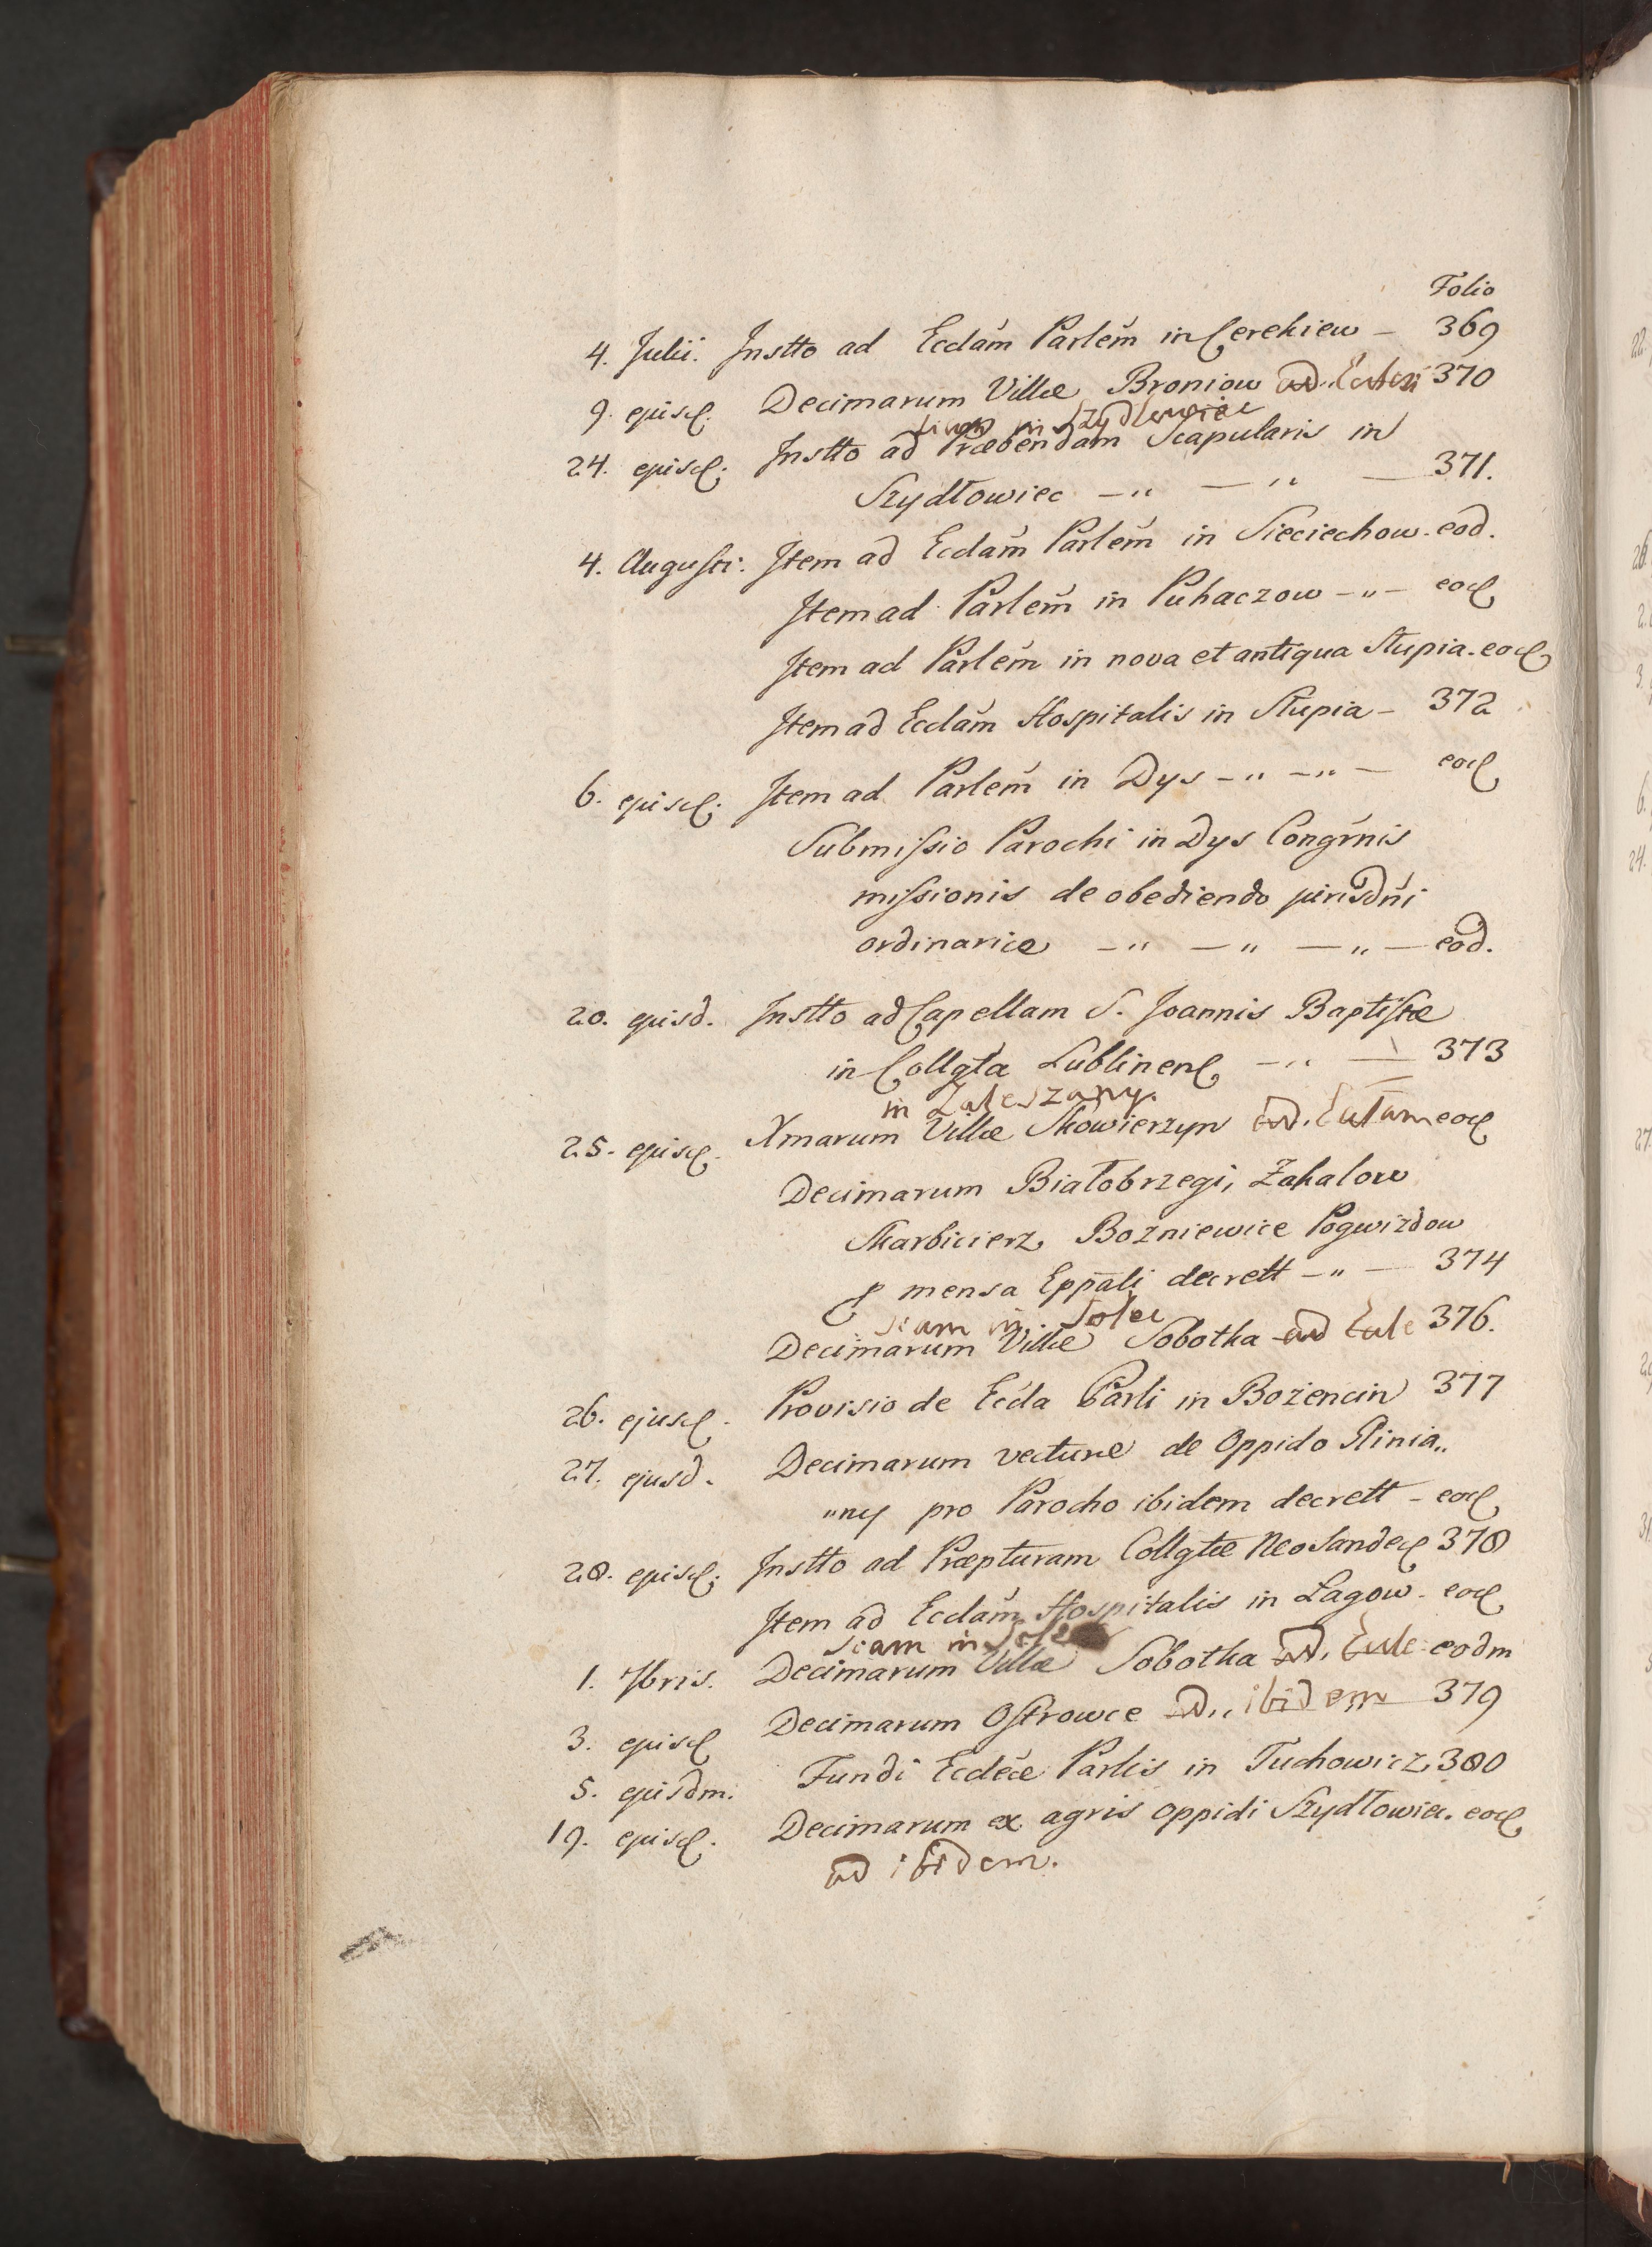 Folio
4. Julii. Instto ad Ecclam Parlem in Cerekiew – 369
9. ejusd. Decimarum Villæ Broniow ad 370
siam in Szydlowiec
24. ejusd. Instto ad Præbendam Scapularis in
Szydłowiec – " – " – 371.
4. Augusti. Item ad Ecclam Parlem in Sieciechow. eod.
Item ad Parlem in Puhaczow – " – eod
Item ad Parlem in nova et antiqua Słupia. eod
Item ad Ecclam Hospitalis in Słupia – 372
6. ejusd. Item ad Parlem in Dys – " – " – eod
Submissio Parochi in Dys Congrnis
missionis de obediendo jurisdni
ordinariæ – " – " – " – eod.
20. ejusd. Instto ad Capellam S. Joannis Baptistæ
in Collgta Lublinen – " – 373
in Zaleszany.
25. ejusd. Xmarum Villæ Skowierzyn ad. eod
Decimarum Białobrzegi, Zakalow
Skarbicierz, Bozniewice Pogwizdow
p mensa Eppali decrett – " – 374
siam in Solec
Decimarum Villæ Sobotka ad Eccle 376.
26. ejusd. Provisio de Eccla Parli in Bożencin 377
27. ejusd. Decimarum vecturæ de Oppido Glinia„
„ny pro Parocho ibidem decrett – eod
28. ejusd. Instto ad Præpturam Collgtæ NeoSandec 378
Item ad Ecclam Hospitalis in Łagow – eod
siam in Solec
1. 7bris. Decimarum Villæ Sobotka ad. Eccle eodm
3. ejusd Decimarum Ostrowce ad„ ibidem 379
5. ejusdm. Fundi Eccleæ Parlis in Tuchowicz, 380
19. ejusd. Decimarum ex agris oppidi Szydłowiec. eod
ad ibidem.